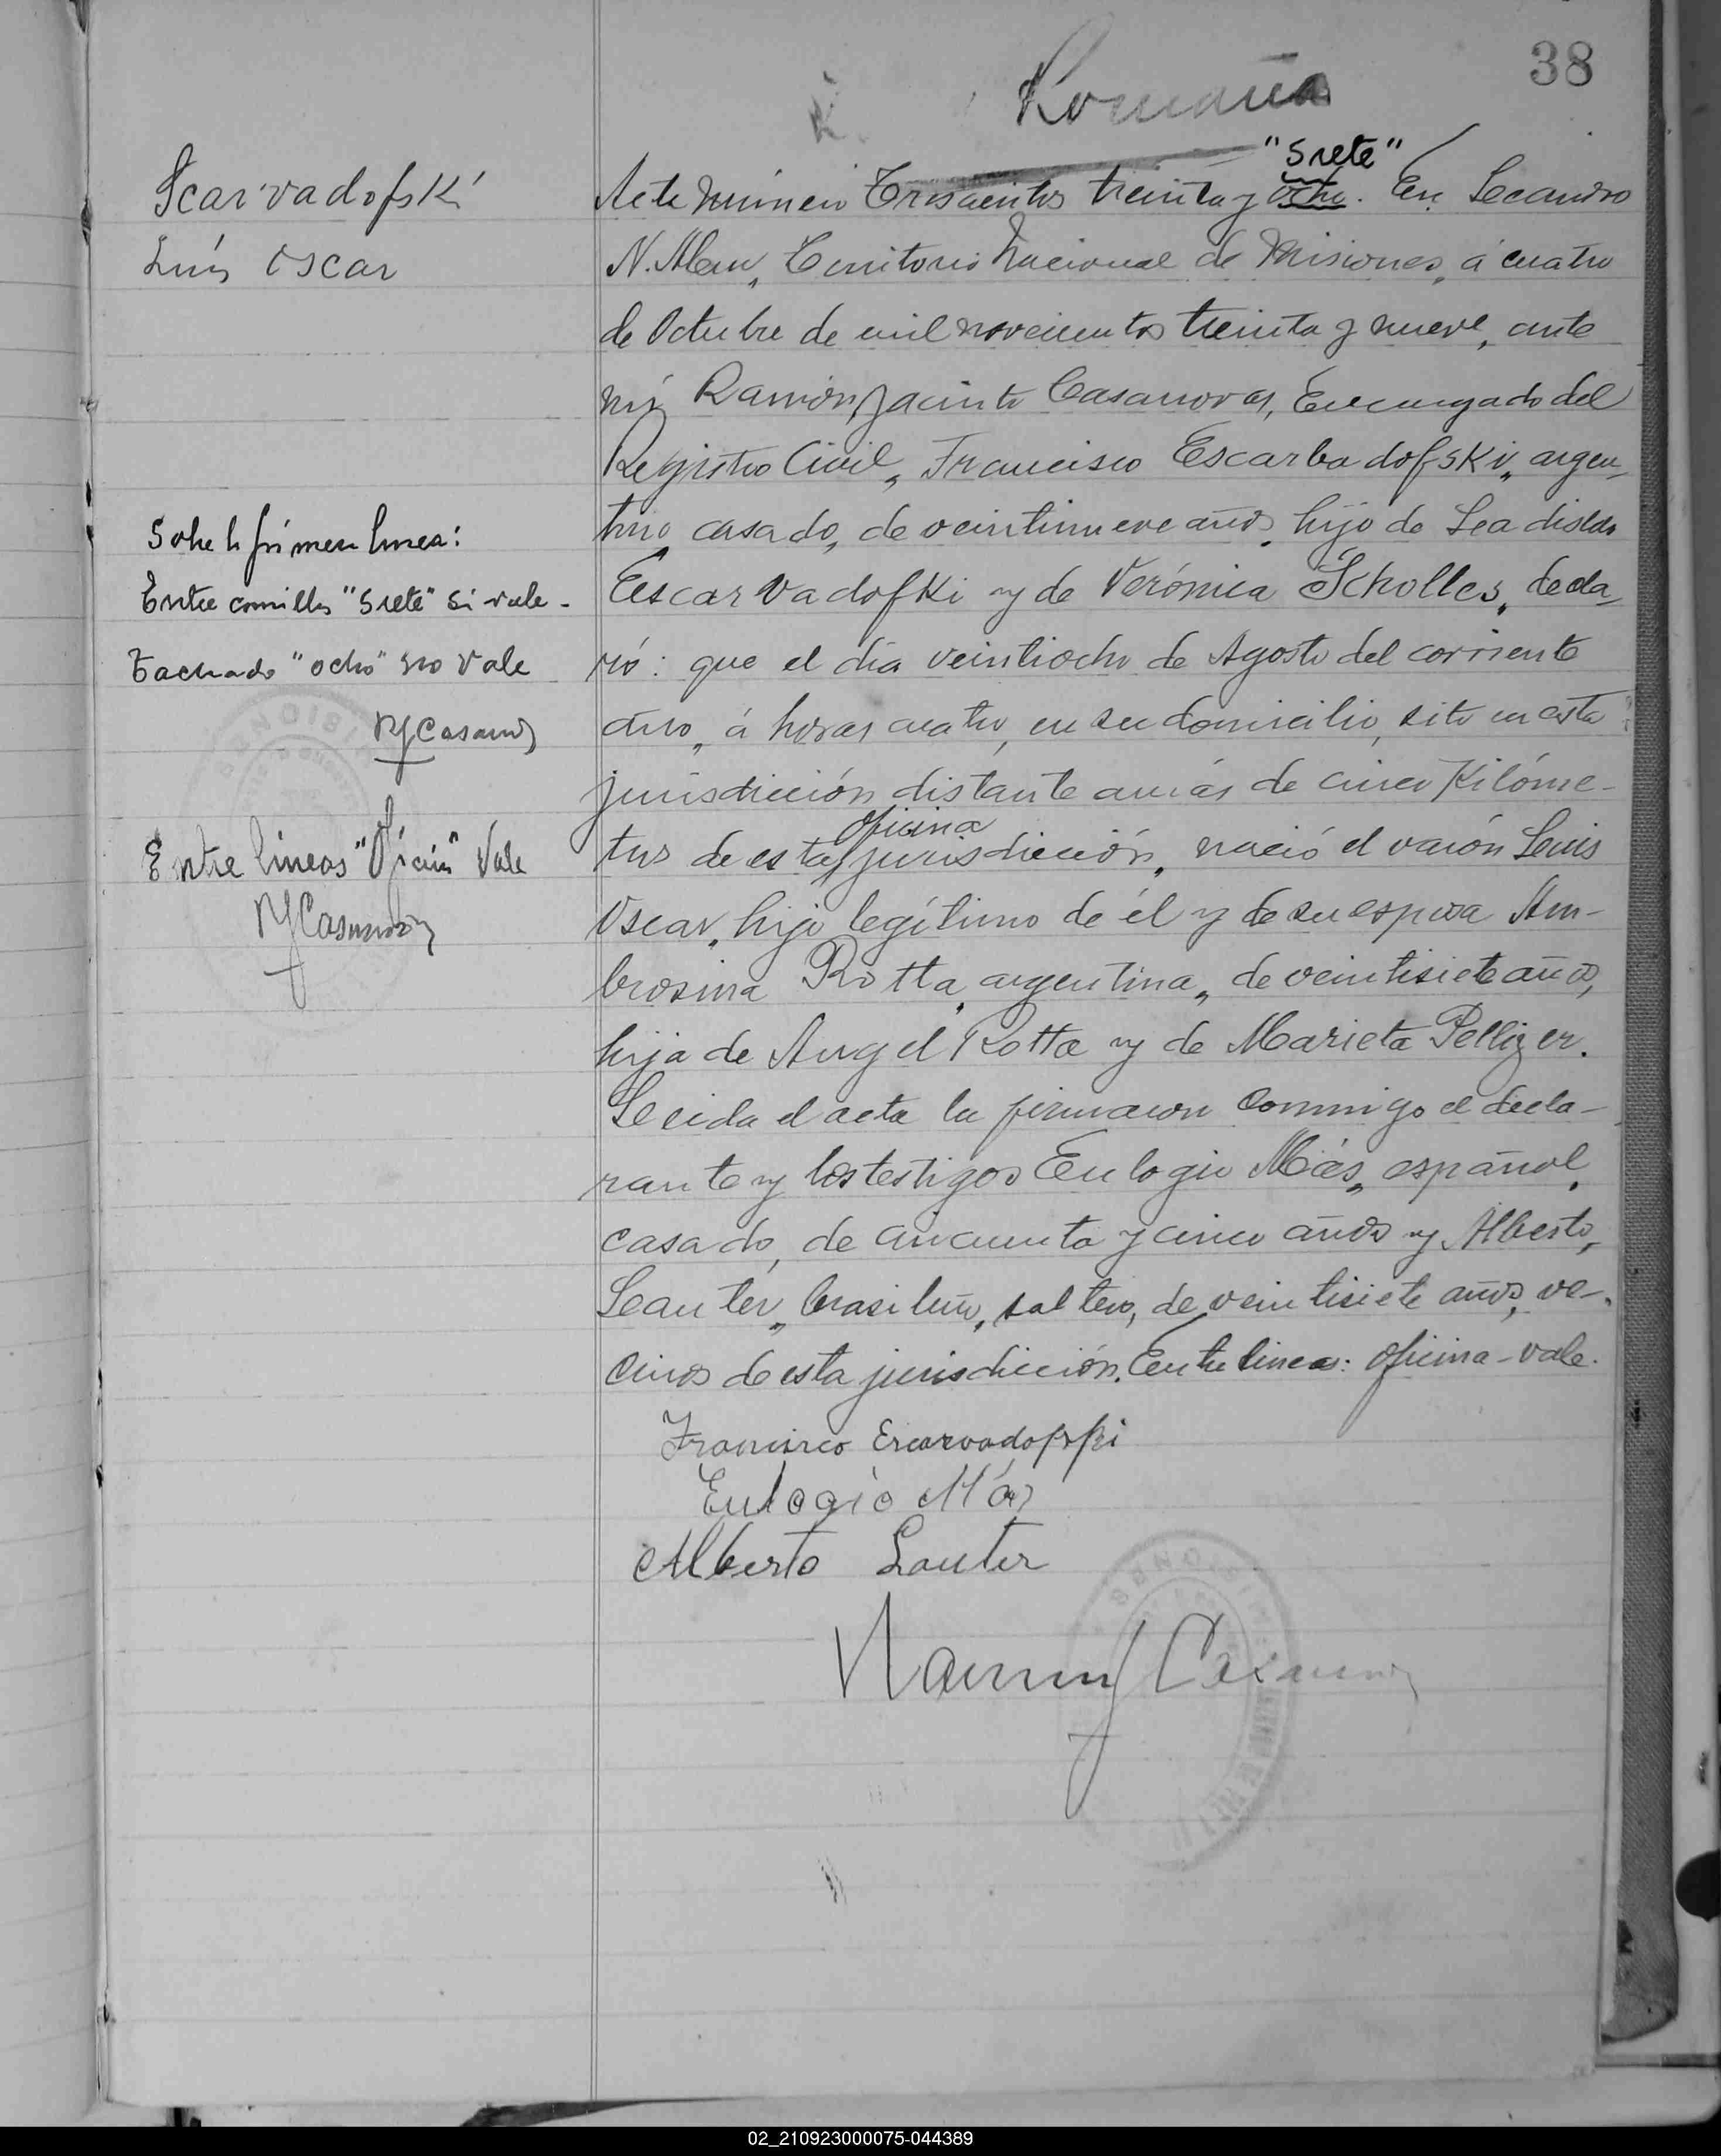 38
Romaña
Scarvadofski
Luís Oscar
"Siete"
Acta número Trescientos treinta y ocho. En Leandro
N. Alem, Territorio Nacional de Misiones, á cuatro
de Octubre de mil novecientos treinta y nueve, ante
mí, Ramón Jacinto Casanovas, Encargado del
Registro Civil, Francisco Escarbadofski, argen-
tino casado, de veintinueve años, hijo de Leadislao
Eescarvadofki y de Verónica Scholles, decla-
ró: que el día veintiocho de Agosto del corriente
año, á horas cuatro, en su domicilio, sito en esta
jurisdicción distante a más de cinco Kilóme-
oficina
tros de esta jurisdicción, nació el varón Luis
Oscar, hijo legítimo de él y de su esposa Am-
brosina Rotta, argentina, de veintisiete años,
hija de Angel Rotta y de Marieta Pellizer.
Leeida el acta la firmaron conmigo el decla-
rante y los testigos Eulogio Más, español,
casado, de cincuenta y cinco años y Alberto,
Leauter, brasileño, soltero, de veintisiete años, ve-
cinos de esta jurisdicción. Entre lineas: oficina-vale.
Sobre la primera linea:
Entre comillas "Siete" Si vale-
Tachado "ocho" no vale
RJCasanovas
Entre líneas "Oficina" Vale
RJCasanovas
Francisco Escarvadofski
Eulogio Más
Alberto Lauter
Ramón J Casanovas
02_210923000075-044389